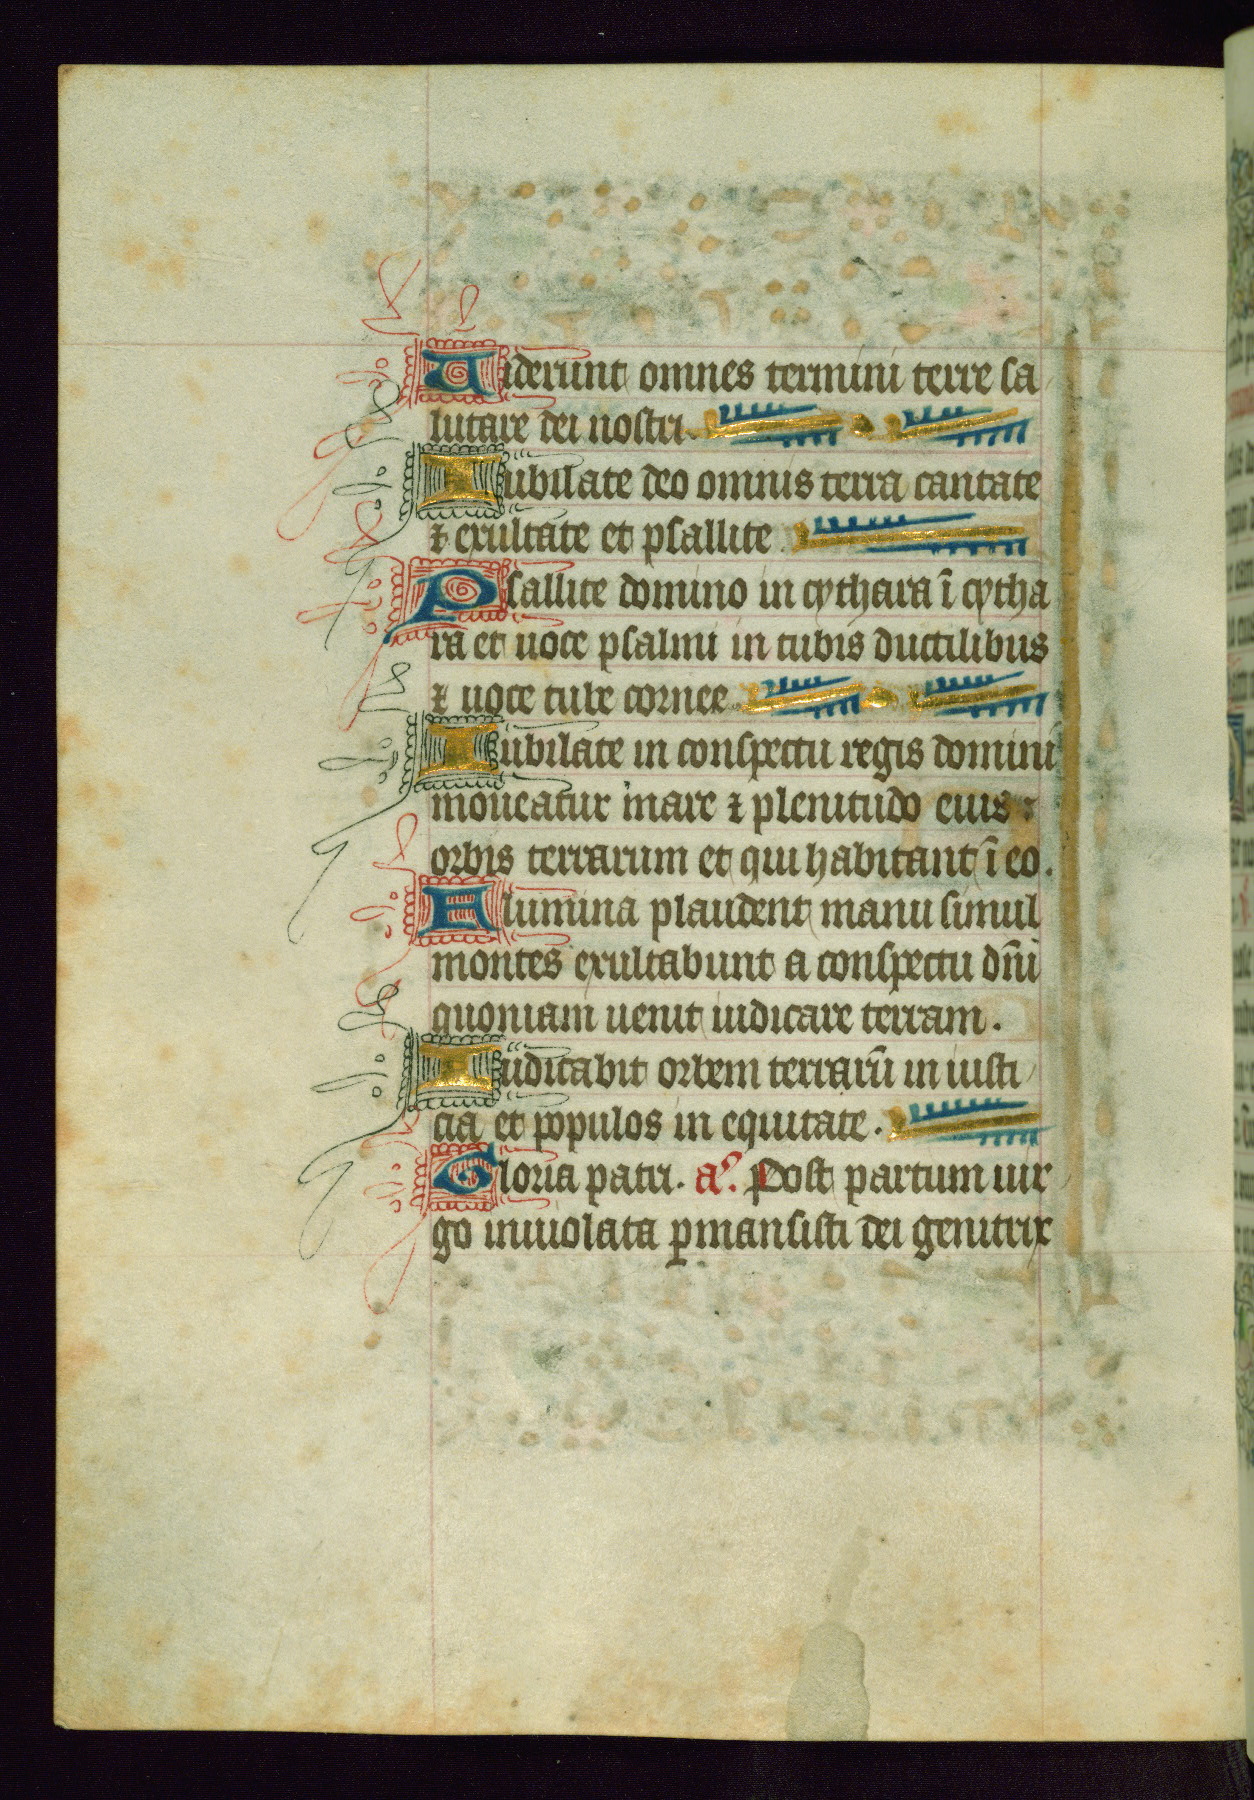 Uiderunt omnes termini terre sa
lutare dei nostri.
Iubilate deo omnis terra cantate
⁊ exultate et psallite
Psallite domino in cythara ī cytha
ra et uoce psalmi in tubis ductilibus
⁊ uoce tube cornee.
Iubilate in conspectu regis domini
moueatur mare ⁊ plenitudo eius :
orbis terrarum et qui habitant ī eo.
Flumina plaudent manu simul
montes exultabunt a conspectu dn̄i
quoniam uenit iudicare terram.
Iudicabit orbem terrarū in iusti
cia et populos in equitate.
Gloria patri. aͦ. Post partum uir
go inuiolata ꝑmansisti dei genitrix